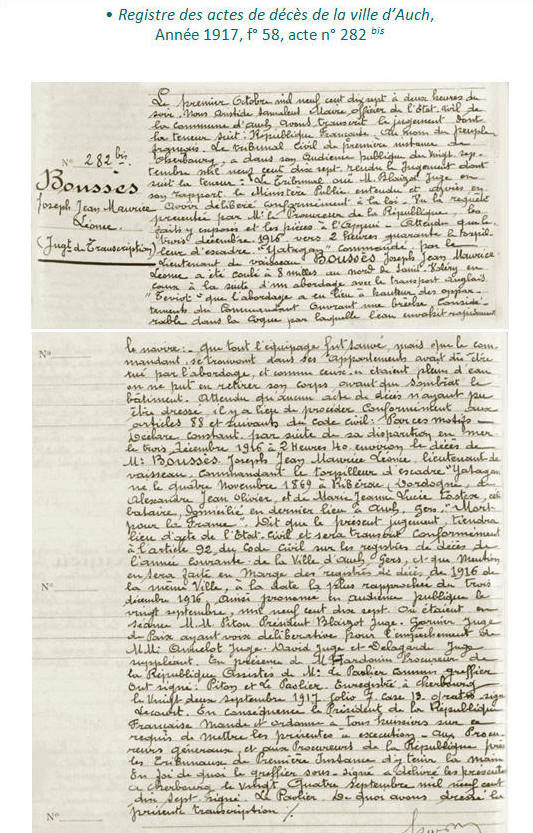 • Registre des actes de décès de la ville d’Auch,
Année 1917, f° 58, acte n° 282 bis
Le premier Octobre mil neuf cent dix sept à deux heures du
soir. Nous Aristide Samalens Maire, officier de l'Etat-Civil de
la commune d'Auch avons transcrit le jugement dont
la teneur suit: République Française. Au nom du peuple
français. Le tribunal civil de première instance de
Cherbourg, a dans son Audience publique du vingt sep-
tembre mil neuf cent dix sept. rendu le jugement dont
suit la teneur: Le Tribunal, oui M. Blaizot Juge en
son rapport, le Ministère Public entendu et après en
avoir délibéré conformément à la loi. Vu la requête
présentée par Mr le Procureur de la République les
faits y exposés et les pièces à l'Appui. Attendu que le
trois décembre 1916 vers 2 heures quarante le torpil-
leur d'escadre "Yatagan" commandé par le
Lieutenant de vaisseau Boussès Joseph Jean Maurice
Léonce a été coulé à 8 milles au nord de Saint-Valéry en
caux à la suite d'un abordage avec le transport anglais
"Teviot" que l'abordage a eu lieu à hauteur des appar-
tements du Commandant ouvrant une brèche considé-
rable dans la coque par laquelle l'eau envahit rapidement
N° 282 bis.
Boussès
Joseph Jean Maurice
Léonce.
(Jugt de Transcription)
N°
le navire: que tout l'équipage fut sauvé, mais que le com-
mandant, se trouvant dans ses appartements avait dû être
tué par l'abordage, et comme ceux-ci étaient plein d'eau
on ne put en retirer son corps avant que sombrât le
bâtiment. Attendu qu'aucun acte de décès n'ayant pu
être dressé, il y a lieu de procéder conformément aux
articles 88 et suivants du code civil: Par ces motifs
Déclare constant par suite de sa disparition en mer
le trois décembre 1916 à 2 Heures 40 environ le décès de
Mr Boussès Joseph Jean Maurice Léonce, lieutenant de
vaisseau, commandant le torpilleur d'escadre "Yatagan"
né le quatre Novembre 1869 à Ribérac (Dordogne), de
Alexandre Jean Olivier, et de Marie Jeanne Lucie, céli-
bataire, domicilié en dernier lieu à Auch, Gers, "Mort
pour la France". Dit que le présent jugement, tiendra
lieu d'acte de l'Etat-Civil et sera transcrit conformément
à l'article 92 du Code Civil sur les registres de décès de
l'année courante de la Ville d'Auch, Gers, et que Mention
en sera faite en Marge des registres de décès de 1916 de
la même Ville, à la date la plus rapprochée du trois
décembre 1916. Ainsi prononcé en audience publique le
vingt septembre, mil neuf cent dix sept. Où étaient en
séance M.M. Piton Président Blaizot Juge. Garnier Juge
de Paix ayant voix délibérative pour l'empêchement de
MM. Juge. David Juge et Delagarde Juge
suppléant. En présence de M. Hardouin Procureur de
la République Assistés de Me Le Paslier Commis greffier
Ont signé: Piton et Le Paslier. Enregistré à Cherbourg
le Vingt deux septembre 1917 folio 7 case 13. Gratis signé
Lecaudt. En conséquence le Président de la République
Française Mande et Ordonne à tous huissiers sur ce
requis de mettre les présentes à exécution - aux Procu-
reurs généraux, et aux Procureurs de la République près
les Tribunaux de Première Instance d'y tenir la main
En foi de quoi le greffier sous-signé a délivré les présentes
à Cherbourg le Vingt Quatre septembre mil neuf cent
dix sept. Signé: Le Paslier. De quoi avons dressé la
présente transcription
N°
N°